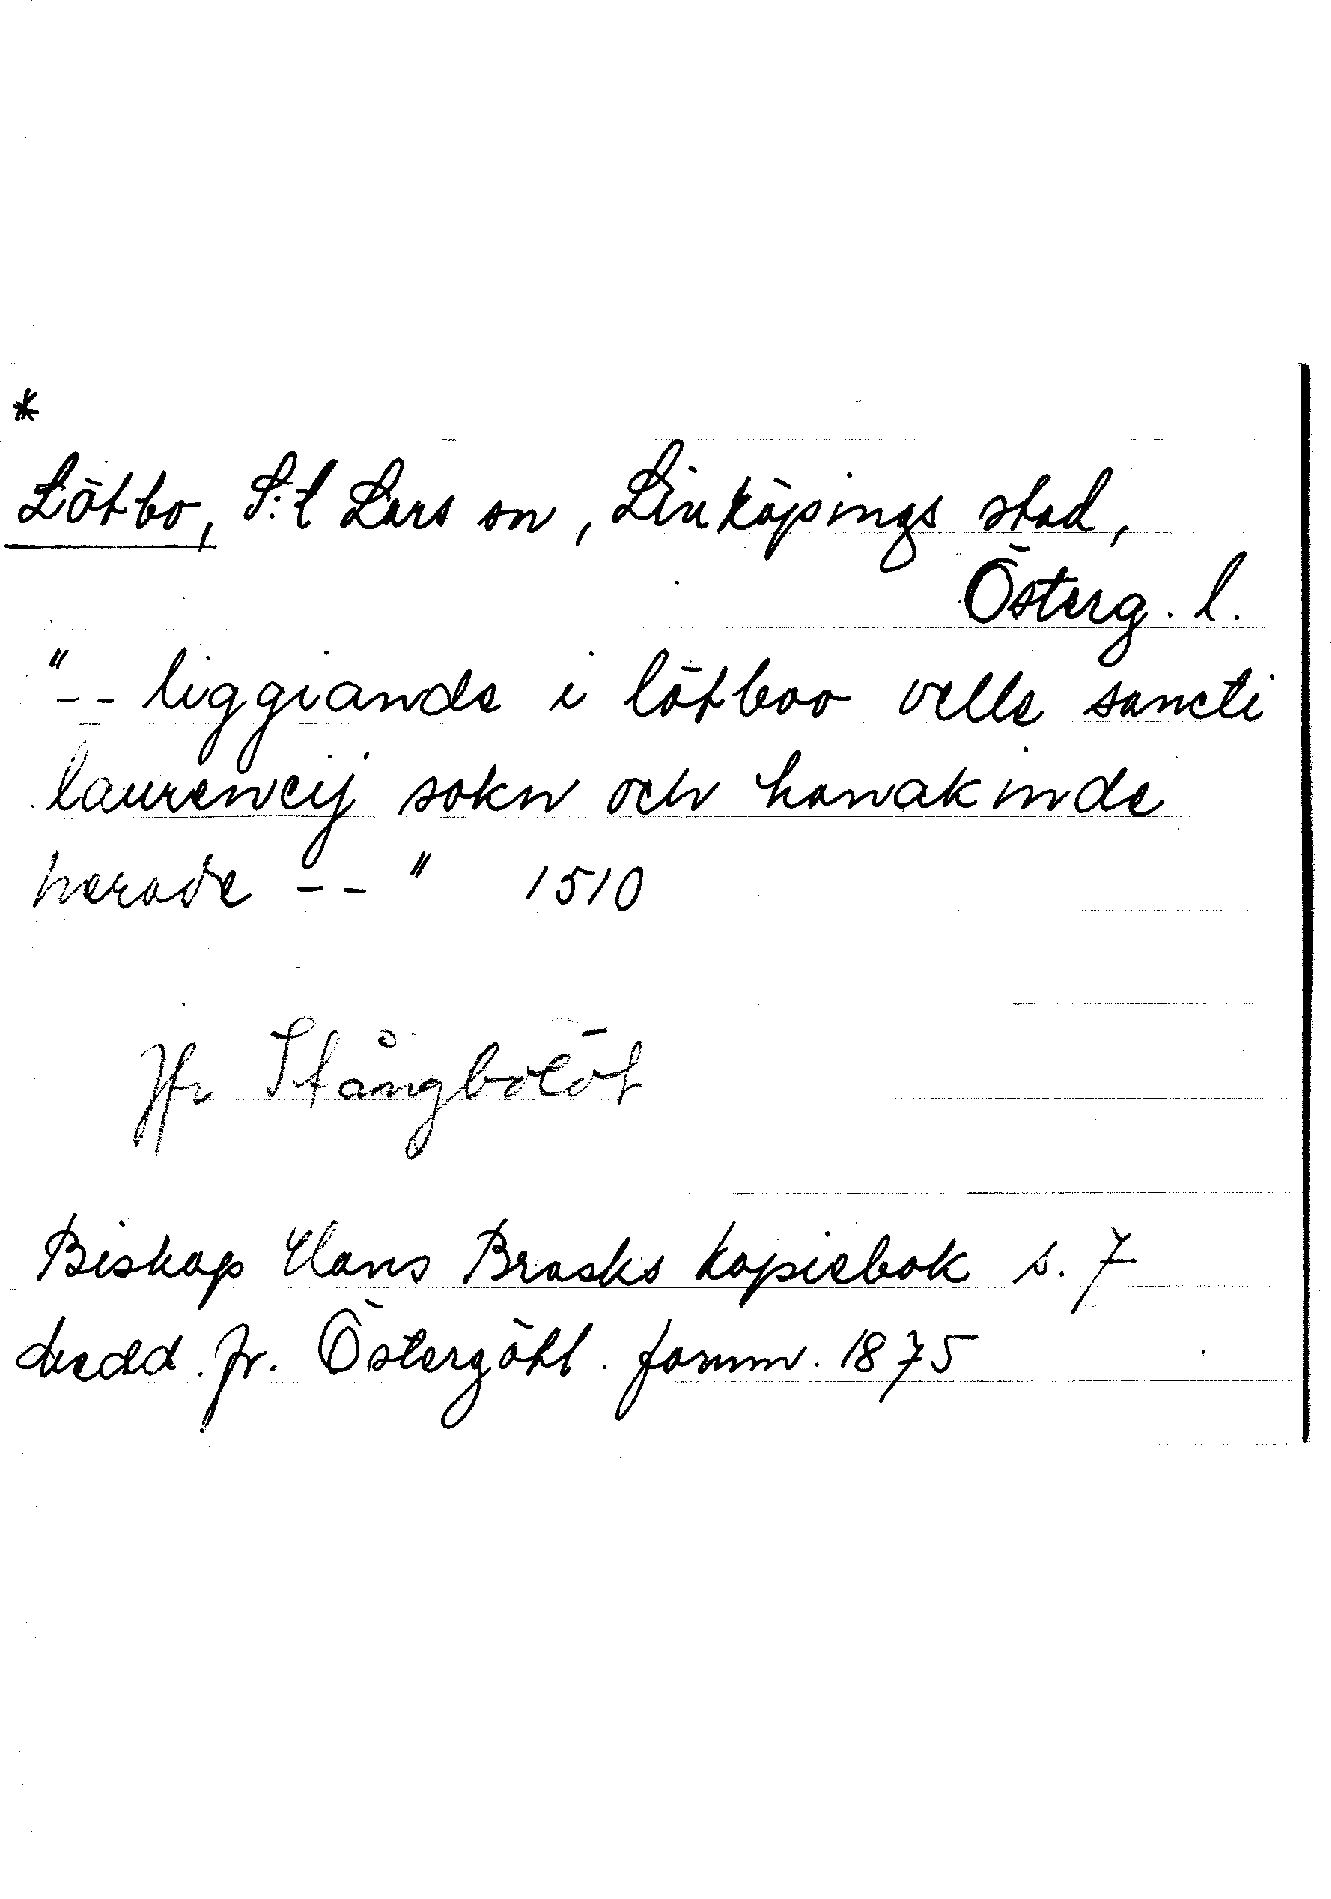 *
Lötbo, S:t Lars sn, Linköpings stad,
Österg. l.
"-- liggiande i lötboo velle sancti
laurencij sokn och hanakinde
herade -- " 1510
Jfr Stångbolöt
Biskop Hans Brasks kopiebok s. 7
Medd. fr. Östergötl. fornm. 1875